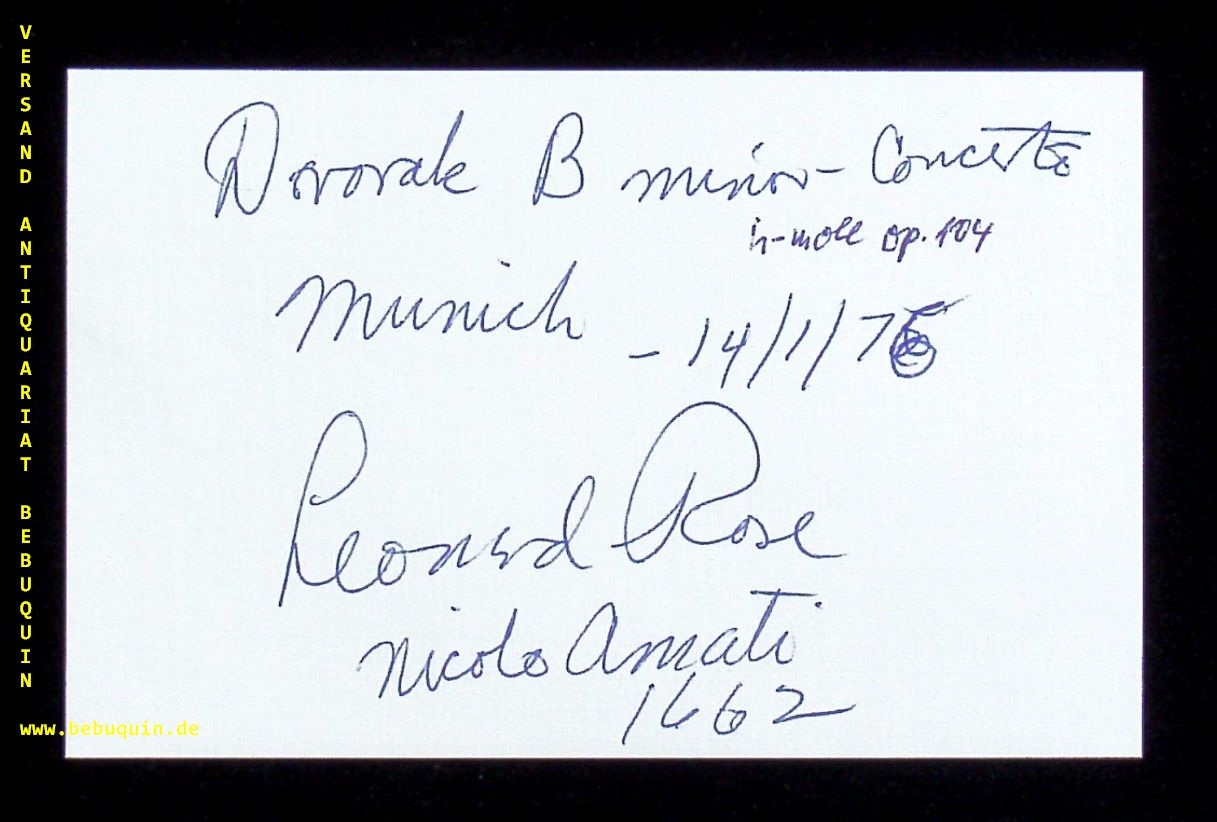 VERSAND ANTIQUARIAT BEBUQUIN
Dvorak B minor - Concerto
h-moll op. 104
Munich - 14/1/76
Leonard Rose
Nicolo Amati
1662
www.bebuquin.de